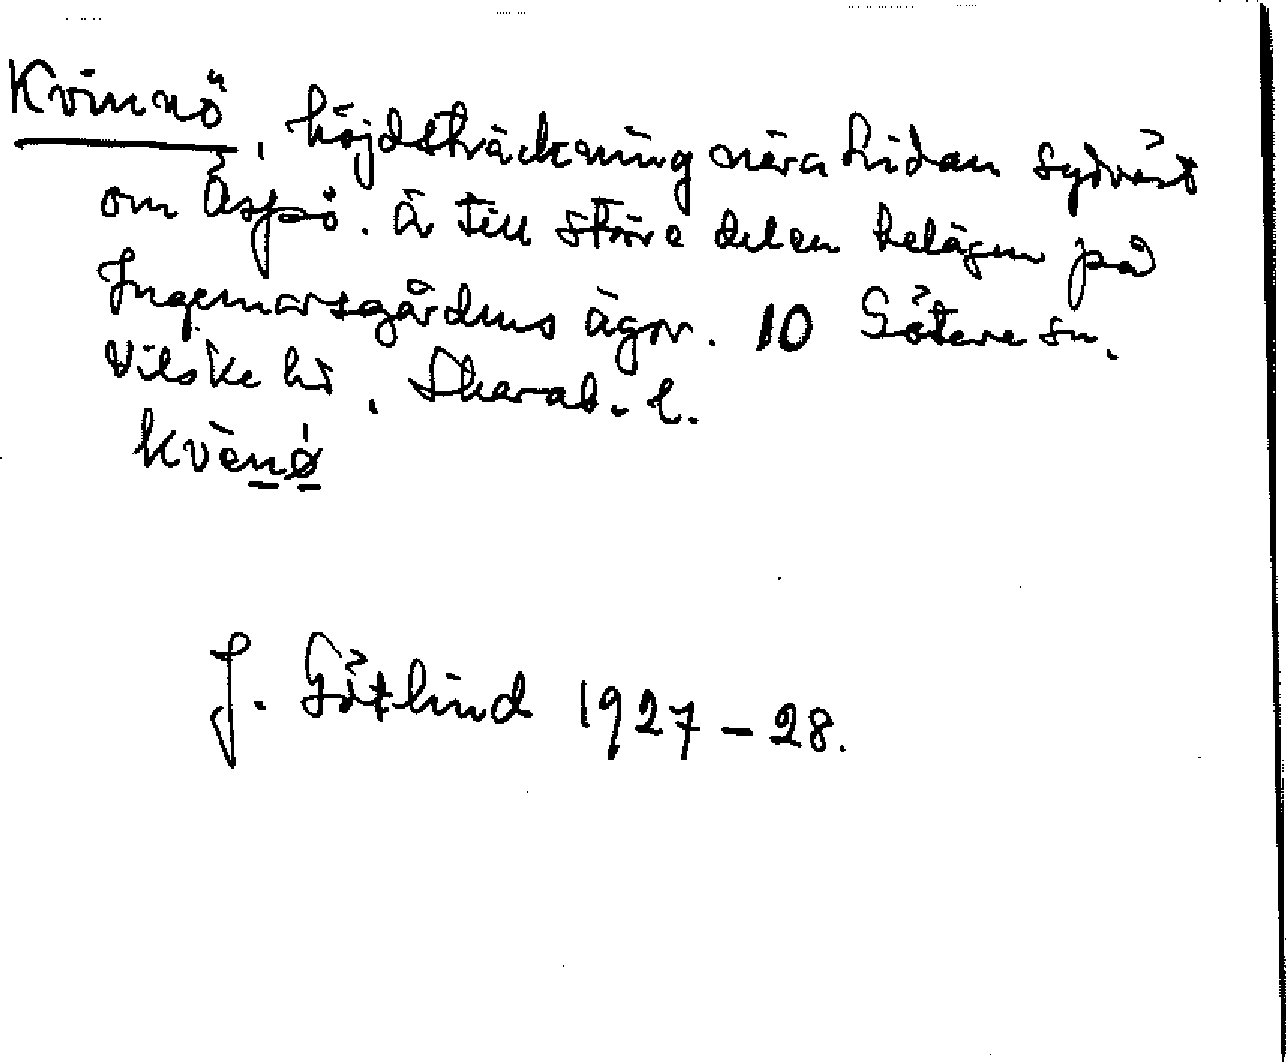 Kvinnö, höjdsträckning nära Lidan sydväst
om Äspö. Är till större delen belägen på
Ingemarsgårdens ägor. 10 Göteve sn.
Vilske hd, Skarab. l.
kvènø
J. Götlind 1927-28.